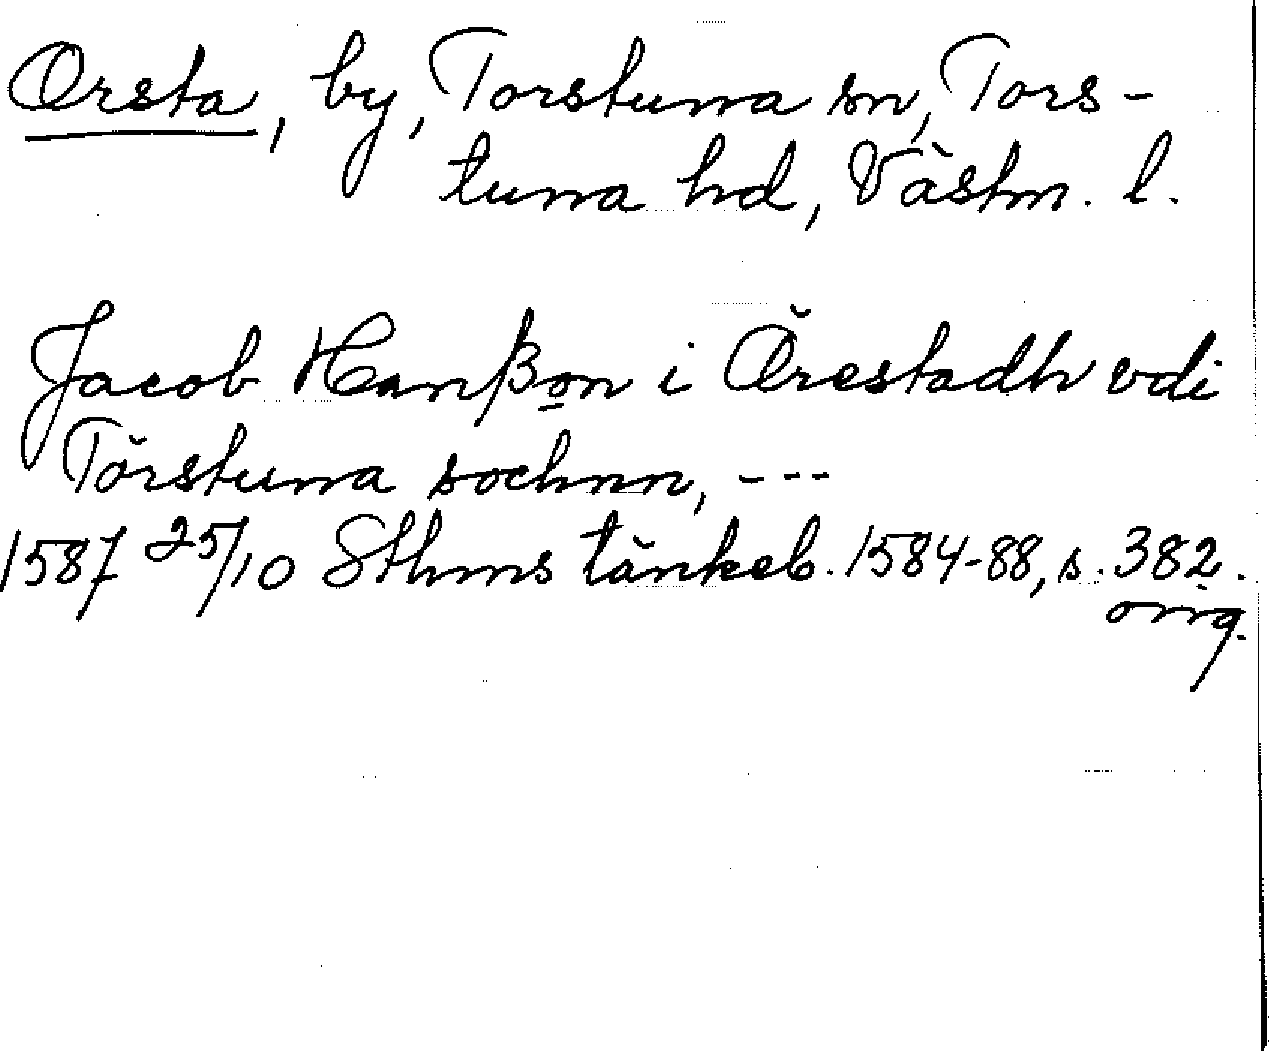 Orsta, by, Torstuna sn, Tors-
tuna hd, Västm. l.
Jacob Hanßon i Örestadh vdi
Törstuna sochnn, ---
1587 25/10 Sthms tänkeb. 1584-88, s. 382.
orig.